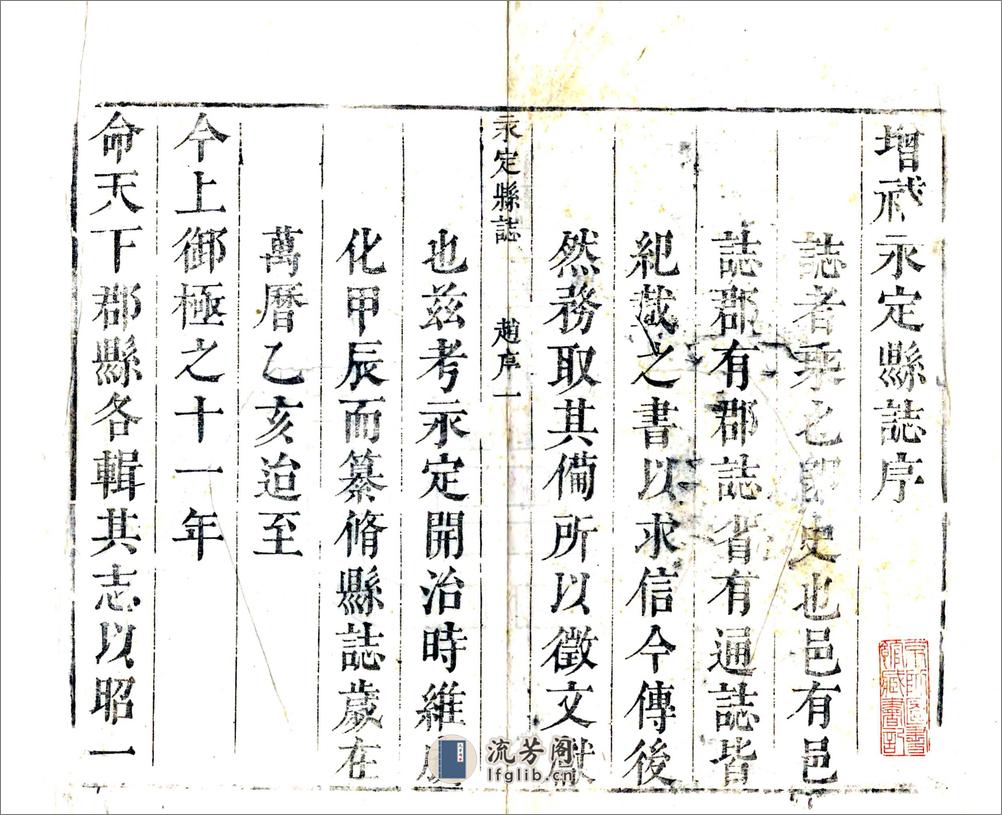 增修永定縣誌序
誌者乘之即史也邑有邑
誌郡有郡誌省有通誌皆
紀載之書以求信今傳後
然務取其備所以徵文獻
永定縣誌 趙序 一
也兹考永定開治時維成
化甲辰而纂脩縣誌歲在
萬曆乙亥迨至
今上御極之十一年
命天下郡縣各輯其志以昭一
京師圖書
館藏書記
流芳阁
lfglib.cn